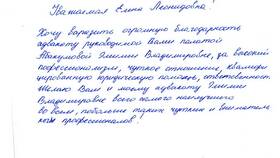 Уважаемая Елена Леонидовна!
Хочу выразить огромную благодарность
адвокату руководимой Вами палатой
Владимировне, за высокий
профессионализм, чуткое отношение, квалифи
цированную юридическую помощь, ответственность
Желаю Вам и моему адвокату
Владимировне всего самого наилучшего
во всем, побольше таких чутких и вниматель
ных профессионалов!